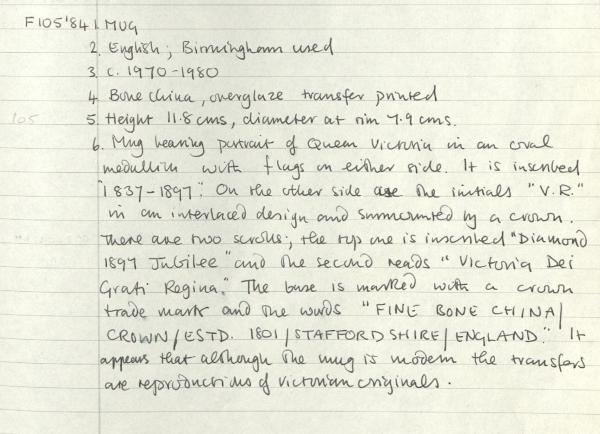 F105'84 1. MUG
2. English; Birmingham used
3. c. 1970-1980
4. Bone china, overglaze transfer printed
105 5. Height 11.8 cms, diameter at rim 7.9 cms.
6. Mug bearing portrait of Queen Victoria in an oval
medallion with flags on either side. It is inscribed
"1837-1897". On the other side are the initials "V.R."
in an interlaced design and surmounted by a crown.
There are two scrolls; the top one is inscribed "Diamond
1897 Jubilee" and the second reads "Victoria Dei
Grati Regina." The base is marked with a crown
trade mark and the words "FINE BONE CHINA/
CROWN/ESTD. 1801/STAFFORDSHIRE/ENGLAND." It
appears that although the mug is modern the transfers
are reproductions of Victorian originals.